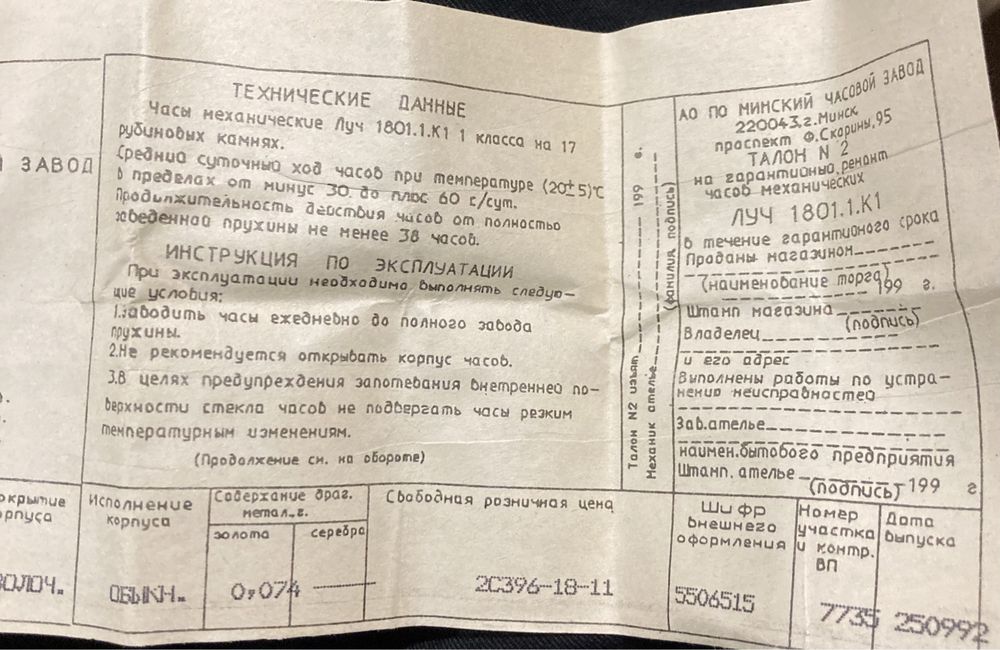 ЗАВОД
ТЕХНИЧЕСКИЕ ДАННЫЕ
Часы механические Луч 1801.1.К1 1 класса на 17
рубиновых камнях.
Средний суточный ход часов при температуре (20±5)°С
в пределах от минус 30 до плюс 60 с/сут.
Продолжительность действия часов от полностью
заведенной пружины не менее 38 часов.
ИНСТРУКЦИЯ ПО ЭКСПЛУАТАЦИИ
При эксплуатации необходимо выполнять следую-
щие условия:
1.Заводить часы ежедневно до полного завода
пружины.
2.Не рекомендуется открывать корпус часов.
3.В целях предупреждения запотевания внетренней по-
верхности стекла часов не подвергать часы резким
температурным изменениям.
(Продолжение см. на обороте)
Талон N2 изъят 199 г.
Механик ателье
(фамилия, подпись)
АО ПО МИНСКИЙ ЧАСОВОЙ ЗАВОД
220043,г.Минск
проспект Ф.Скорины,95
ТАЛОН N 2
на гарантийный ремонт
часов механических
ЛУЧ 1801.1.К1
в течение гарантийного срока
Проданы магазином
(наименование торга)
199 г.
Штамп магазина
(подпись)
Владелец
и его адрес
Выполнены работы по устра-
нению неисправностей
Зав.ателье
наимен.бытового предприятия
Штамп. ателье 199 г.
(подпись)
окрытие
орпуса
ЗОЛОЧ.
Исполнение
корпуса
ОБЫКН.
Содержание драг.
метал.,г.
золота
серебра
0,074
Свободная розничная цена
2С396-18-11
Шифр
внешнего
оформления
5506515
Номер
участка
и контр.
ВП
7735
Дата
выпуска
250992